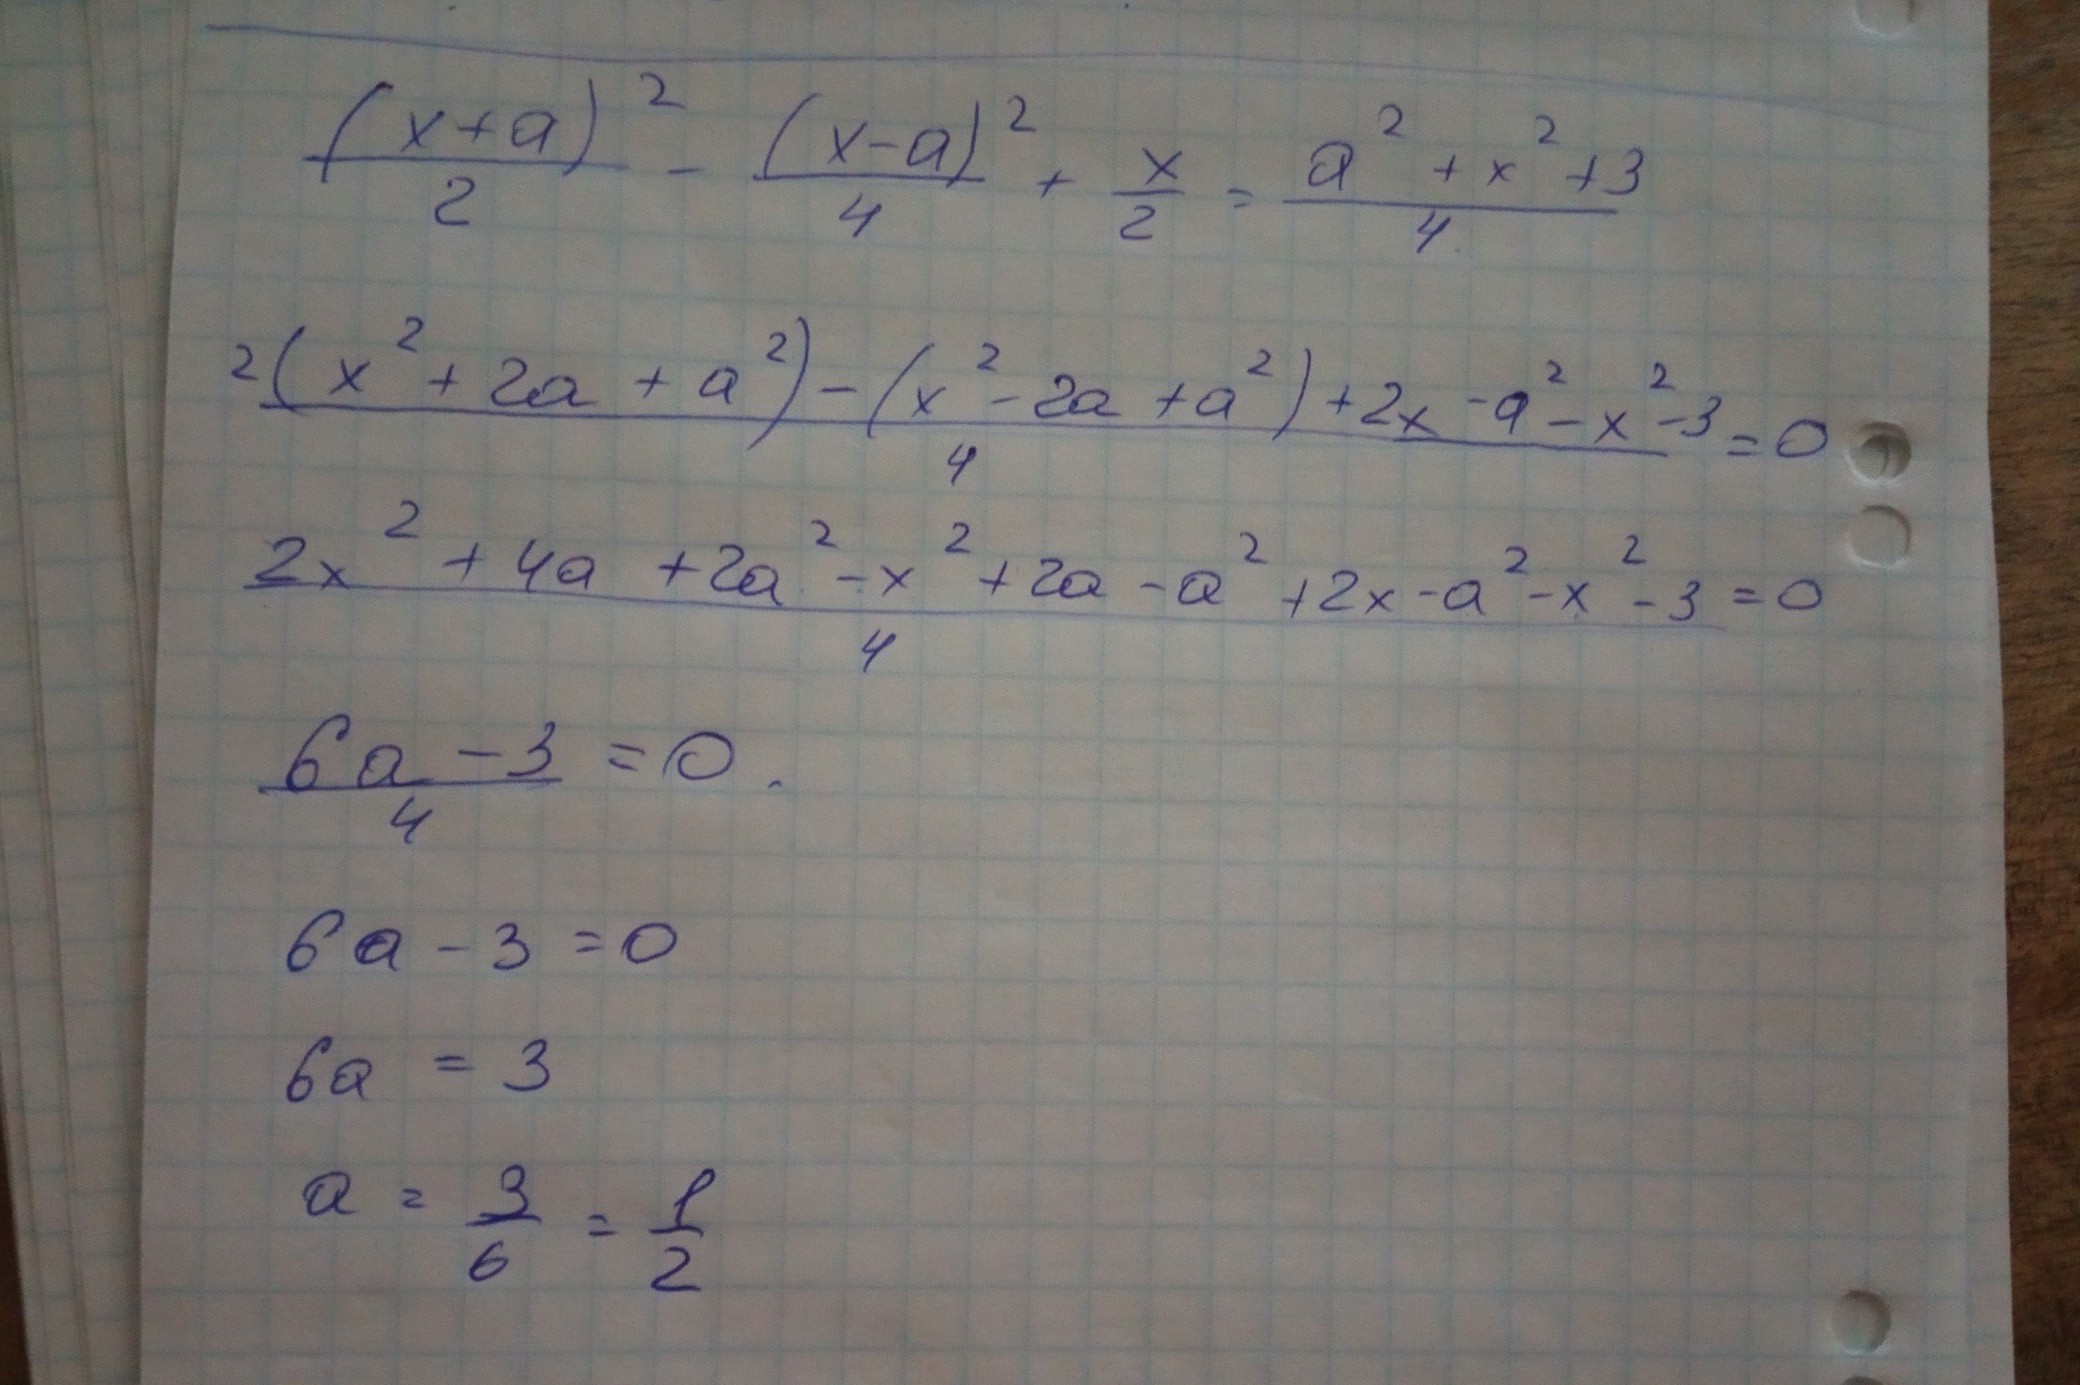 (x+a)²/2 - (x-a)²/4 + x/2 = a²+x²+3/4
2(x²+2a+a²)-(x²-2a+a²)+2x-a²-x²-3/4=0
2x²+4a+2a²-x²+2a-a²+2x-a²-x²-3/4=0
6a-3/4=0.
6a-3=0
6a=3
a=3/6=1/2